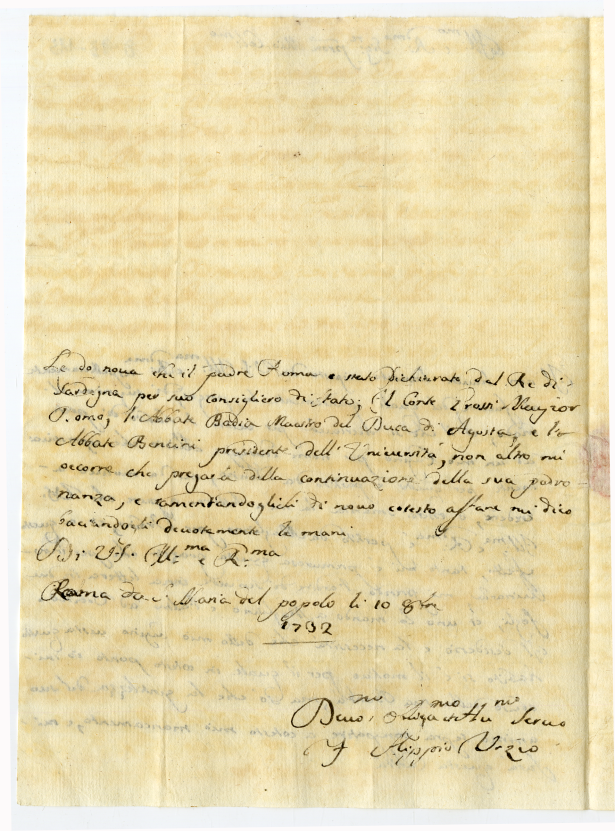 Le do nova che il padre Roma è stato dichiarato dal Re di
Sardegna per suo consigliero di stato; il Conte Prossi Maggior
D.omo, l'Abbate Badia Maestro del Duca di Agosta, e l'
Abbate Bencini presidente dell'Università, non altro mi
occorre che pregarla della continuazione della sua padro
nanza, e ramentandogli di novo cotesto affare mi dico
baciandogli devotamente le mani
Di V. S. Ill.ma e R.ma
Roma da S. Maria del popolo li 10 8bre
1732
Devo.mo Obligatis.mo Servo
F. Filippo